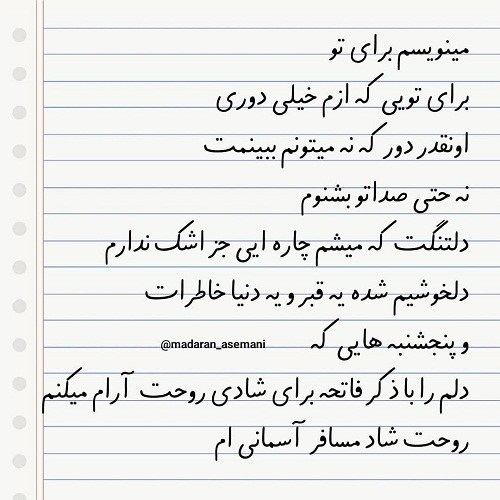 مینویسم برای تو
برای تویی که ازم خیلی دوری
اونقدر دور که نه میتونم ببینمت
نه حتی صداتو بشنوم
دلتنگت که میشم چاره ایی جز اشک ندارم
دلخوشیم شده یه قبر و یه دنیا خاطرات
و پنجشنبه هایی که @madaran_asemani
دلم را با ذکر فاتحه برای شادی روحت آرام میکنم
روحت شاد مسافر آسمانی ام